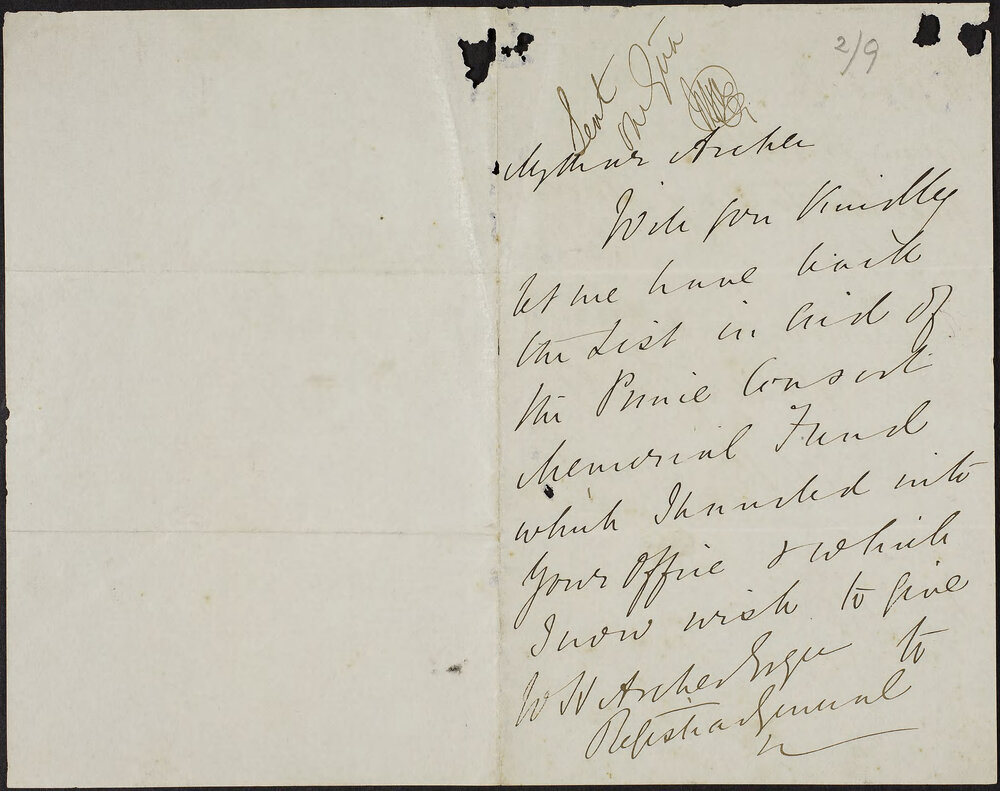 2/9
Sent
My dear Archer
Will you Kindly
let me have back
the List in Aid of
the Prince Consort
Memorial Fund
which I handed into
your Office & which
I now wish to give
to
W H Archer Esqre
Registrar General